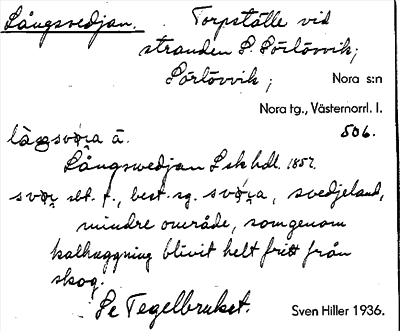 Långsvedjan. Torpställe vid
stranden S. Sörlövvik;
Sörlövvik; Nora s:n
Nora tg., Västernorrl. l.
506.
làŋsvø̀ra ä.
Långswedjan Lsk hdl. 1857.
svør sbt. f., best. sg. svøra, svedjeland,
mindre område, som genom
kalhuggning blivit helt fritt från
skog.
Se Tegelbruket. Sven Hiller 1936.